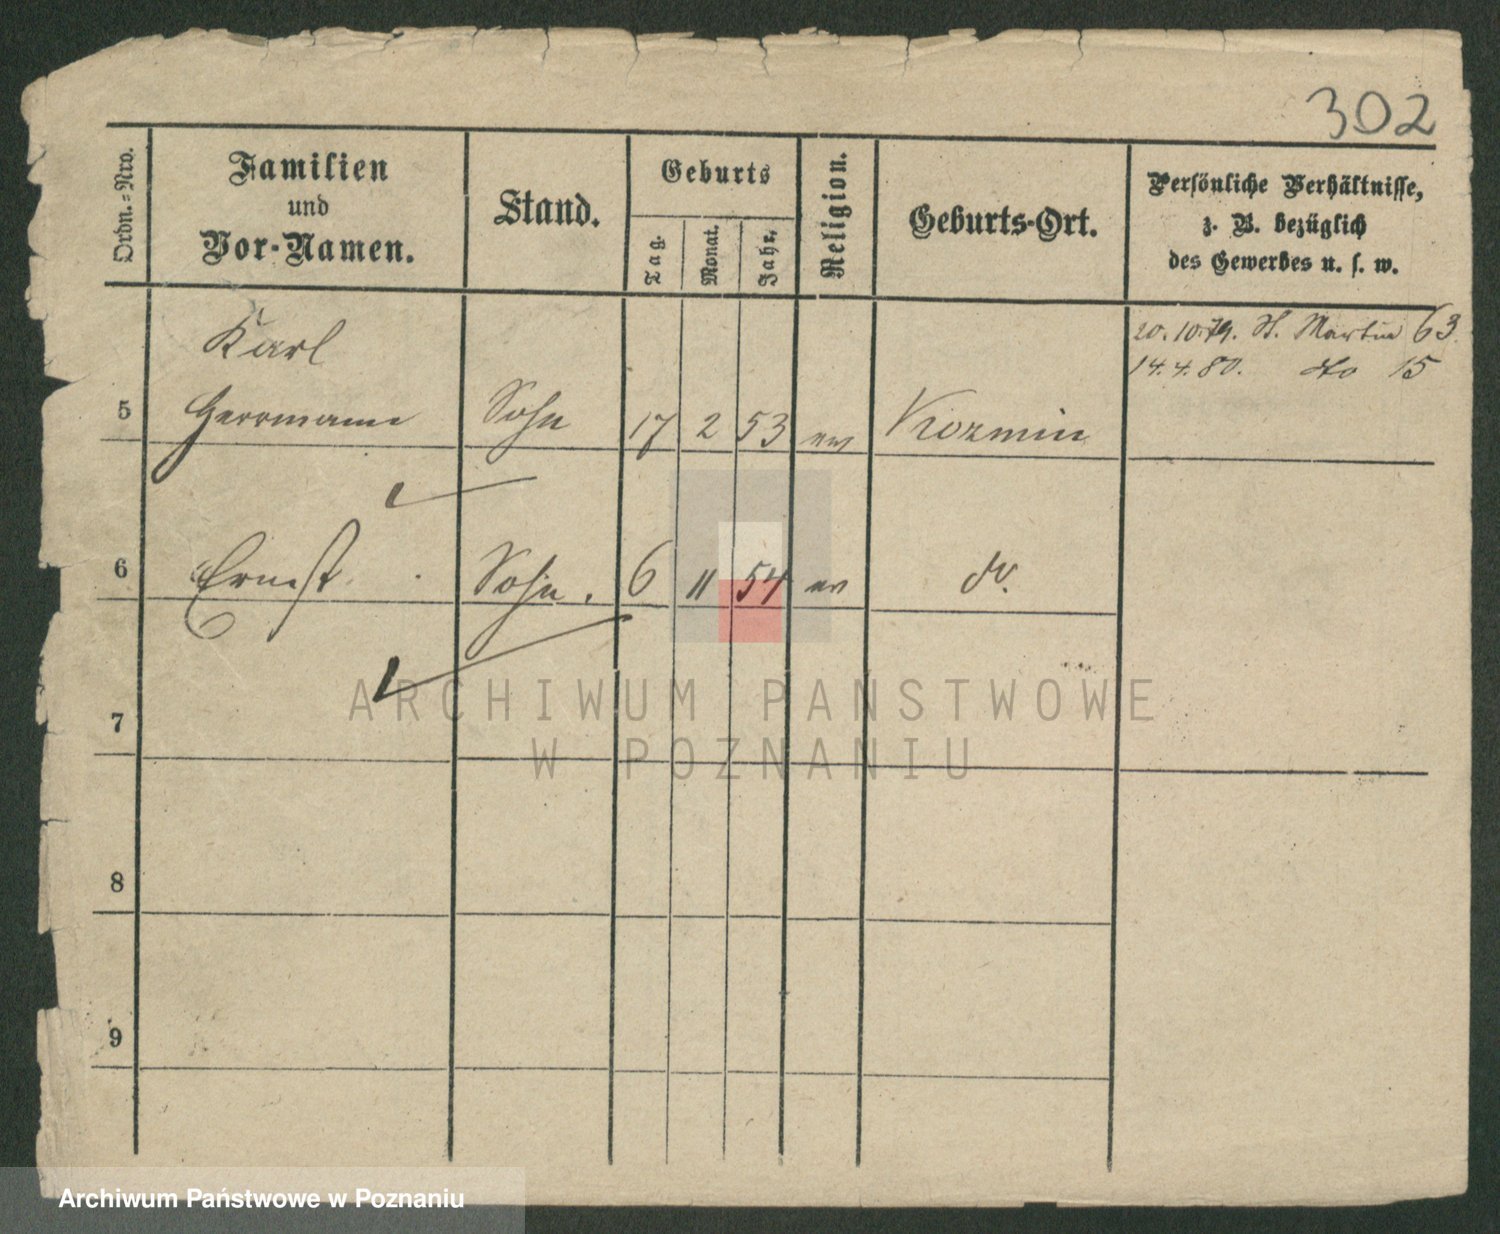 302
Ordn.-Nro.
Familien
und
Vor-Namen.
Stand.
Geburts
Tag.
Monat.
Jahr.
Religion.
Geburts-Ort.
Persönliche Verhältnisse,
z. B. bezüglich
des Gewerbes u. s. w.
20. 10. 79. St. Martin 63.
14. 4. 80. do 15
Karl
5 Herrmann Sohn 17 2 53 ev Kozmin
6 Ernst. Sohn. 6 11 54 ev do.
7
8
9
ARCHIWUM PAŃSTWOWE
W POZNANIU
Archiwum Państwowe w Poznaniu